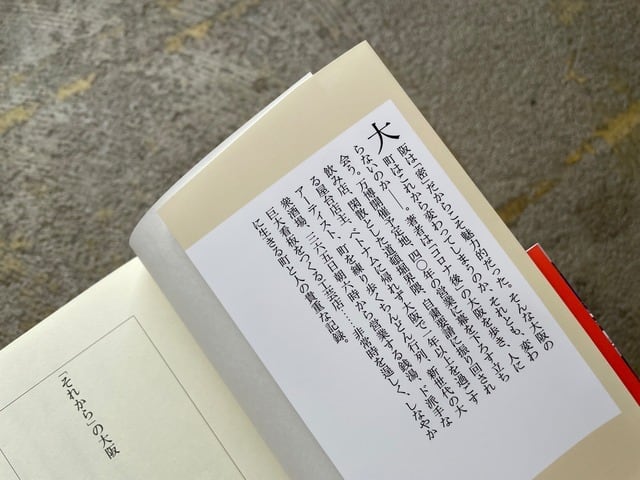 大阪は「密」だからこそ魅力的だった。そんな大阪の
町はこれから変わってしまうのか、それとも、変わ
らないのか――。著者は「コロナ後」の大阪を歩き、人に
会う。万博開催予定地、四〇年の営業に幕を下ろす立ち
飲み店、閑散とした道頓堀界隈、自粛要請に振り回され
る屋台店主、ベトナムに帰れず大阪で一年以上を過ごす
アーティスト、町を練り歩くちんどん行列、新世代の大
衆酒場、三六五日朝六時から営業する銭湯、ド派手な
巨大看板をつくる工芸店……非常時を逞しく、しなやか
に生きる町と人の貴重な記録。
「それから」の大阪